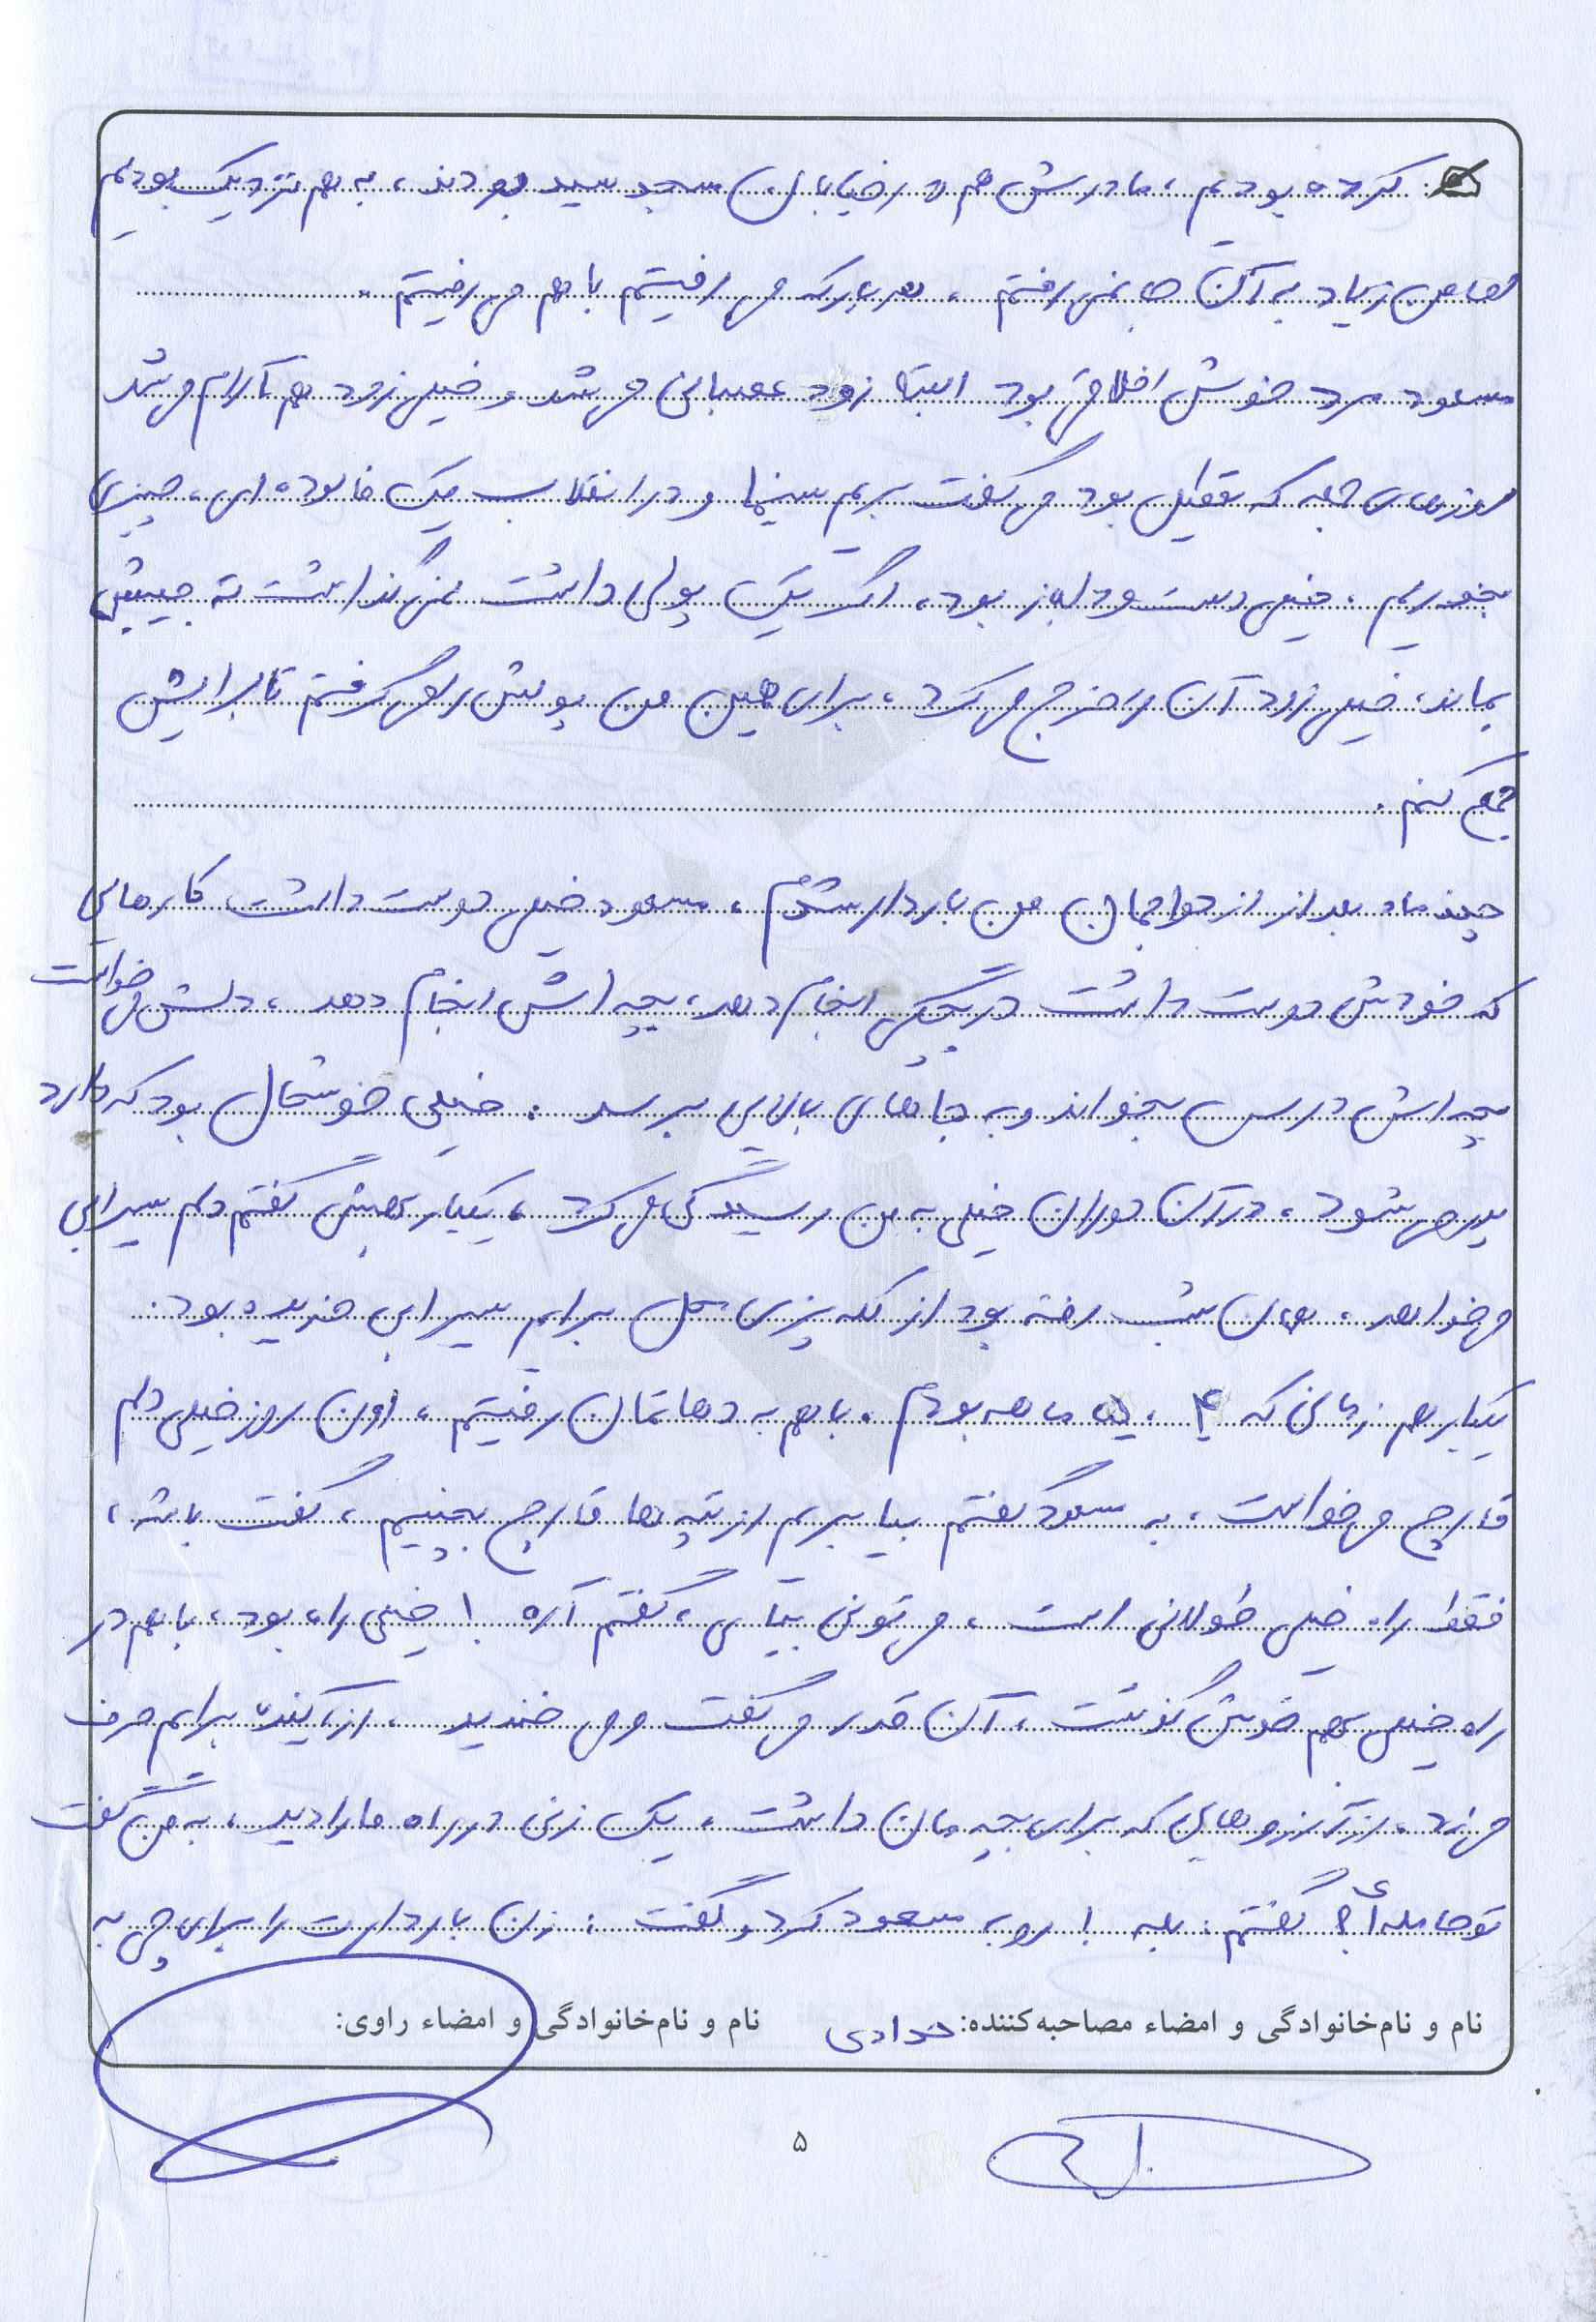 کرده بودیم، مادرش هم در خیابان مسجد سید بودند، به هم نزدیک بودیم
اما من زیاد به آن جا نمی رفتم، هر بار که می رفتیم با هم می رفتیم.
مسعود مرد خوش اخلاقی بود البته زود عصبانی می شد و خیلی زود هم آرام می شد
روزهای جمعه که تعطیل بود می گفت بریم سینما و در انقلاب یک فالوده ای، چیزی
بخوریم، خیلی دست و دلباز بود، اگر یک پولی داشت نمی گذاشت ته جیبش
بماند، خیلی زود آن را خرج می کرد، برای همین من پولش را می گرفتم تا برایش
جمع کنم.
چند ماه بعد از ازدواجمان من باردار شدم، مسعود خیلی دوست داشت کارهایی
که خودش دوست داشت در بچگی انجام دهد، بچه اش انجام دهد، دلش می خواست
بچه اش درس بخواند و به جاهای بالایی برسد. خیلی خوشحال بود که دارد
پدر می شود، در آن دوران خیلی به من رسیدگی می کرد، یکبار بهش گفتم دلم سیرابی
می خواهد، همان شب رفته بود از کله پزی محل برایم سیرابی خریده بود.
یکبار هم زمانی که ۴، ۵ ماهه بودم. با هم به دهاتمان رفتیم، اون روز خیلی دلم
قارچ می خواست، به مسعود گفتم بیا بریم از تپه ها قارچ بچینیم، گفت باشه،
فقط راه خیلی طولانی است، می تونی بیای، گفتم آره! خیلی راه بود، با هم در
راه خیلی بهم خوش گذشت، آن قدر می گفت و می خندید، از آینده برایم حرف
می زد، از آرزوهایی که برای بچه مان داشت، یک زنی در راه ما را دید، به من گفت
تو حامله أی؟ گفتم: بله! رو به مسعود کرد و گفت: زن باردارت را برای چی به
نام و نام‌خانوادگی و امضاء مصاحبه‌کننده:
نام و نام‌خانوادگی و امضاء راوی:
۵